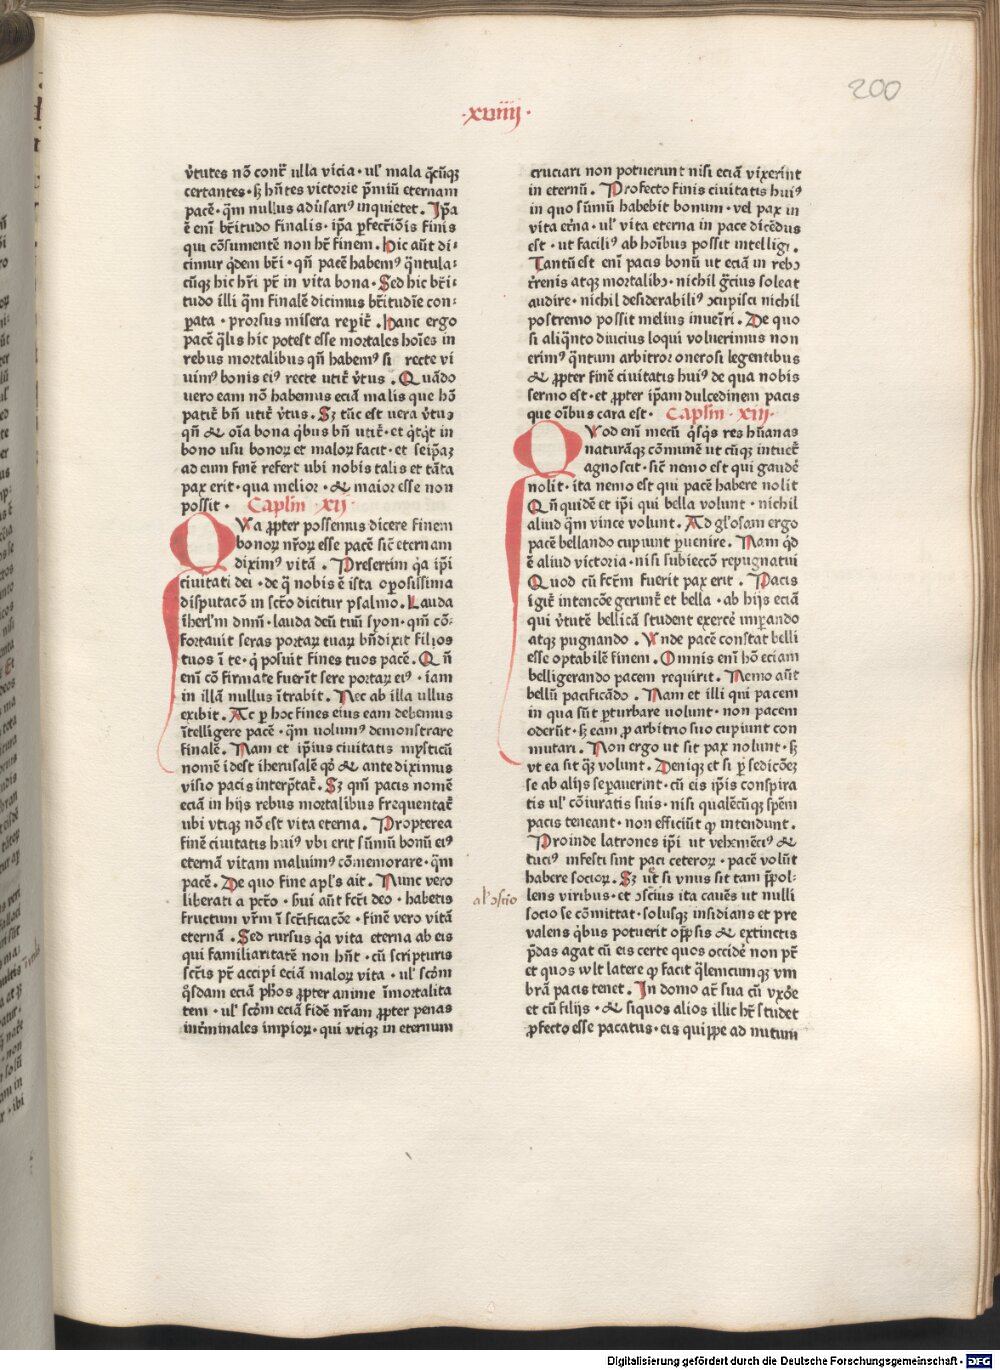 200
·xviiij·
v̄tutes nō conr̄ ulla vicia · ul' mala q̄cūqȝ
certantes · sȝ hn̄tes victorie p̄miū eternam
pacē · q̄m nullus adūsariꝰ inquietet . Ip̄a
ē enī br̄itudo finalis · ip̄a ꝑfectīōis finis
qui cōsumentē non hr̄ finem . hic aūt di⸗
cimur q̄dem br̄i · qn̄ pacē habemꝰ q̄ntula⸗
cūqȝ hic hr̄i pr̄ in vita bona . Sed hic br̄i⸗
tudo illi q̄m finalē dicimus br̄itudīe con⸗
ꝑata · prorsus misera reꝑir̄ . hanc ergo
pacē q̄lis hic potest esse mortales hoīes in
rebus mortalibus qn̄ habemꝰ si recte vi
uimꝰ bonis eiꝰ recte utir̄ v̄tus . Quādo
uero eam nō habemus eciā malis que hō
patir̄ bn̄ utir̄ v̄tus . Sȝ tūc est uera v̄tus
qn̄ & oīa bona q̄bus bn̄ utir̄ · et q̄tq̄t in
bono usu bonoꝝ et maloꝝ facit · et seip̄aȝ
ad eum finē refert ubi nobis talis et tāta
pax erit · qua melior · & maior esse non
possit · Caplm̄ · xij
QVa ꝓpter possemus dicere finem
bonoꝝ nr̄oꝝ esse pacē sic̄ eternam
diximꝰ vitā . Presertim q̄a ip̄i
ciuitati dei · de q̄ nobis ē ista oꝑosissima
disputacō in scr̄o dicitur psalmo . Lauda
ih̄erl'm dnm̄ · lauda deū tuū syon · qm̄ cō⸗
fortauit seras portaꝝ tuaꝝ bn̄dixit filijos
tuos ī te · q̄ posuit fines tuos pacē . Qn̄
enī cō firmate fuerīt sere portaꝝ eiꝰ · iam
in illā nullus ītrabit . Nec ab illa ullus
exibit . Ac ꝑ hoc fines eius eam debemus
ītelligere pacē · q̄m volumꝰ demonstrare
finalē . Nam et ip̄ius ciuitatis mysticū
nomē idest iherusalē qꝰ & ante diximus
visio pacis interp̄tat̄ . Sȝ qm̄ pacis nomē
eciā in hijs rebus mortalibus frequentat̄
ubi vtiqȝ nō est vita eterna . Propterea
finē ciuitatis huiꝰ vbi erit sūmū bonū eiꝰ
eternā vitam maluimꝰ cōmemorare · q̄m
pacē . De quo fine apl's ait . Nunc vero
liberati a pcc̄o · hui aūt fcr̄i deo · habetis
fructum vr̄m ī scr̄ificacōe · finē vero vitā
eternā . Sed rursus q̄a vita eterna ab eis
qui familiaritatē non hn̄t · cū scripturis
scr̄is pr̄ accipi eciā maloꝝ vita · ul' scdm̄
q̄sdam eciā ph̄os ꝓpter anime īmortalita
tem · ul' scdm̄ eciā fidē nr̄am ꝓpter penas
inr̄minales impioꝝ · qui vtiqȝ in eternum
cruciari non potuerunt nisi eciā vixerīnt
in eternū . Profecto finis ciuitatis huiꝰ
in quo sūmū habebit bonum · vel pax in
vita et̄na · ul' vita eterna in pace dicēdus
est · ut faciliꝰ ab hoībus possit intelligi .
Tantū est enī pacis bonū ut eciā in rebꝰ
tr̄enis atqȝ mortalibꝰ · nichil gr̄cius soleat
audire · nichil desiderabiliꝰ ꝯcupisci nichil
postremo possit melius inueīri . De quo
si aliq̄nto diucius loqui voluerimus non
erimꝰ q̄ntum arbitror onerosi legentibus
& ꝓpter finē ciuitatis huiꝰ de qua nobis
sermo est · et ꝓpter ip̄am dulcedinem pacis
que oībus cara est · Caplm̄ · xiij·
QVod enī mecū q̄sqȝ res hūanas
naturāqȝ cōmunē ut cūqȝ intuet̄
agnoscit · sic̄ nemo est qui gaudē
nolit · ita nemo est qui pacē habere nolit
Qn̄quidē et ip̄i qui bella volunt · nichil
aliud q̄m vincē volunt . Ad gl'osam ergo
pacē bellando cupiunt ꝑuenire . Nam q̄d
ē aliud victoria · nisi subieccō repugnatui
Quod cū fcr̄m fuerit pax erit . Pacis
igit̄ intencōe gerunt̄ et bella · ab hijs eciā
qui v̄tutē bellicā student exercē imꝑando
atqȝ pugnando . Vnde pacē constat belli
esse optabilē finem . Omnis enī hō eciam
belligerando pacem requirit . Nemo aūt
bellū pacificādo . Nam et illi qui pacem
in qua sūt ꝑturbare uolunt · non pacem
oderūt · sȝ eam ꝓ arbitrio suo cupiunt con
mutari . Non ergo ut sit pax nolunt · sȝ
vt ea sit q̄ȝ volunt . Deniqȝ et si ꝑ sedicōeȝ
se ab alijs seꝑauerint · cū eis ip̄is conspira
tis ul' cōiuratis suis · nisi qualēcūqȝ spēm
pacis teneant · non efficiūt qꝫ intendunt .
Proinde latrones ip̄i ut vehemēciꝰ &
tuciꝰ infesti sint paci ceteroꝝ · pacē volūt
habere socioꝝ . Sȝ uet̄ si vnus sit tam p̄pol⸗
lens viribus · et ꝯscius ita cauēs ut nulli
al' ꝯscio
socio se cōmittat · solusqȝ insidians et pre
valens q̄bus potuerit opp̄sis & extinctis
p̄das agat cū eis certe quos occidē non pr̄
et quos wlt latere qꝫ facit q̄lemcumqȝ vm
brā pacis tenet . In domo at̄ sua cū vxōe
et cū filijs · & siquos alios illic hr̄ studet
ꝓfecto esse pacatus · eis quippe ad nutum
Digitalisierung gefördert durch die Deutsche Forschungsgemeinschaft · DFG